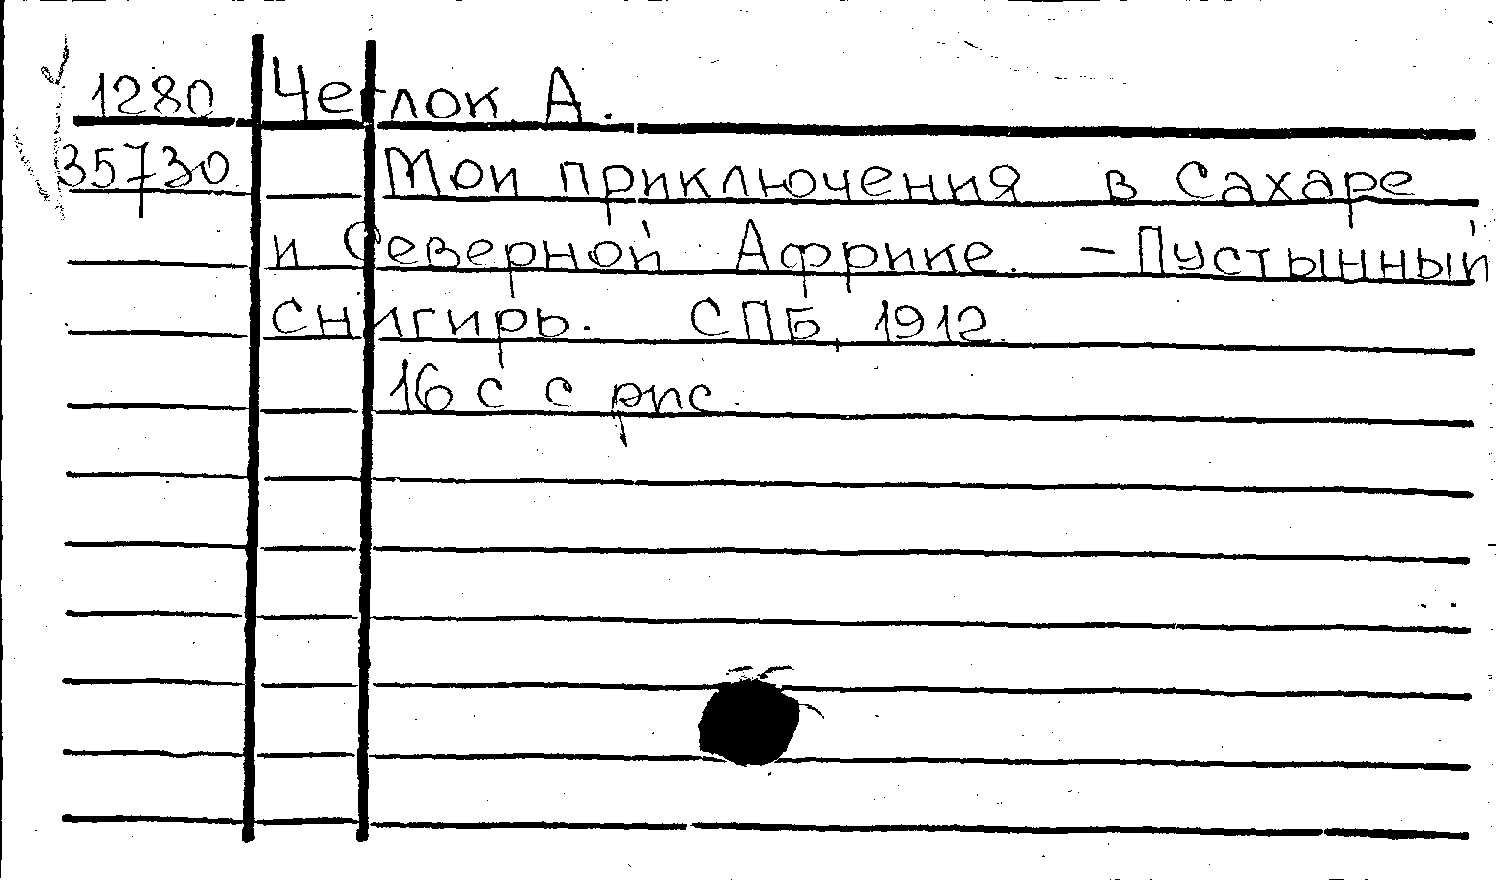 1280 Чеглок А.
35730 Мои приключения в Сахаре
и Северной Африке. – Пустынный
снигирь. СПБ, 1912.
16 с с рис.